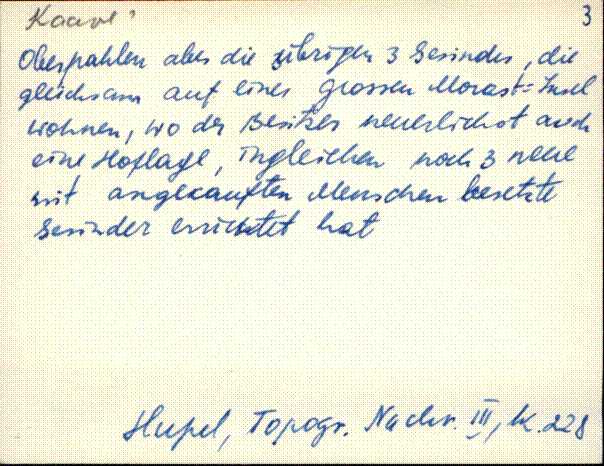 Kaavel 3
Oberpahlen aber die übrigen 3 Gesinder, die
gleichsam auf einer grossen Morast=Insel
wohnen, wo der Besitzer neuerlichst auch
eine Hoflage, ingleichen noch 3 neue
mit angekauften Menschen besetzte
Gesinder errichtet hat
Hupel, Topogr. Nachr. III, lk. 228